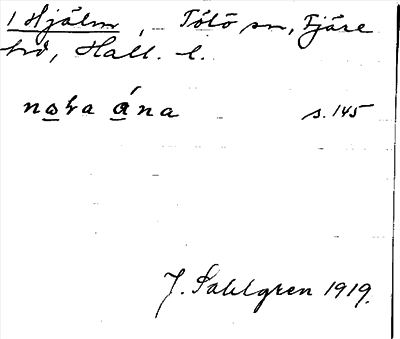 1 Hjälm, Tölö sn, Fjäre
hd, Hall. l.
nora ána s. 145
J. Sahlgren 1919.